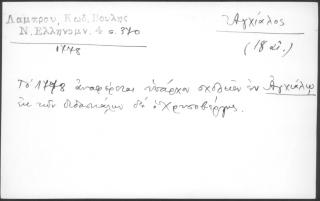 Λαμπρου, Κωδ. Βουλης
Ν. Ελληνομν. 4 σ. 370
1778
Ἀγχίαλος
(18 αἰ.)
Τὸ 1778 ἀναφέρεται ὑπάρχον σχολεῖον ἐν Ἀγχιάλῳ
ἐκ τῶν διδασκάλων δὲ ὁ Χρυσοβέργης.